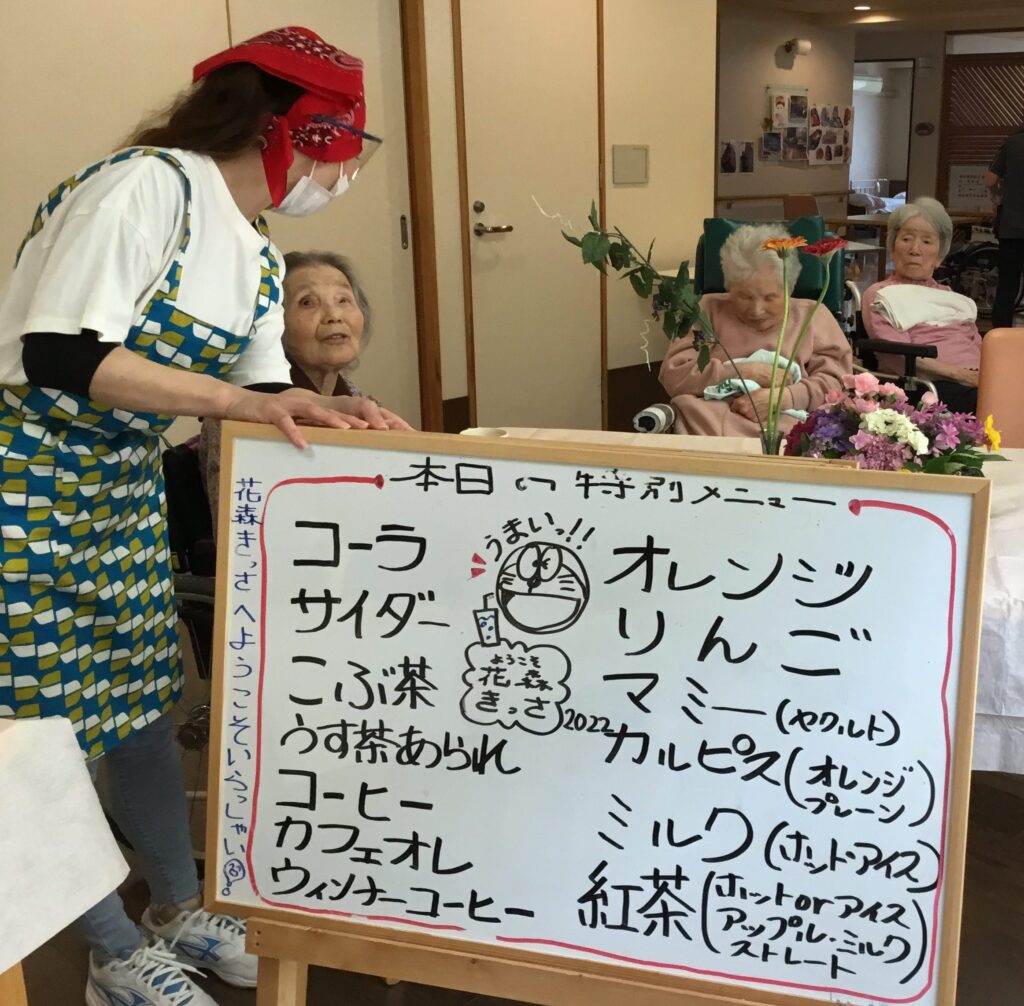 本日の特別メニュー
花森きっさへようこそいらっしゃい
コーラ
サイダー
こぶ茶
うす茶あられ
コーヒー
カフェオレ
ウィンナーコーヒー
うまいっ!!
ようこそ
花森
きっさ
2022
オレンジ
りんご
マミー(ヤクルト)
カルピス(オレンジ
プレーン)
ミルク(ホット・アイス)
紅茶(ホットorアイス
アップル・ミルク
ストレート)